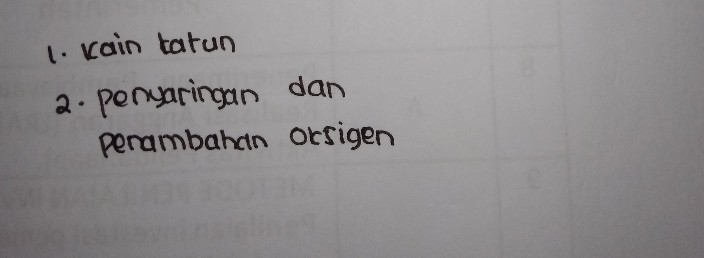 1. Kain katun
2. penyaringan dan
penambahan oksigen